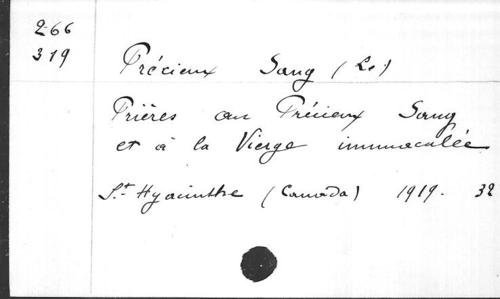 266
319
Précieux Sang (Le)
Prières au Précieux Sang
et à la Vierge immaculée
St. Hyacinthe (Canada) 1919. 32